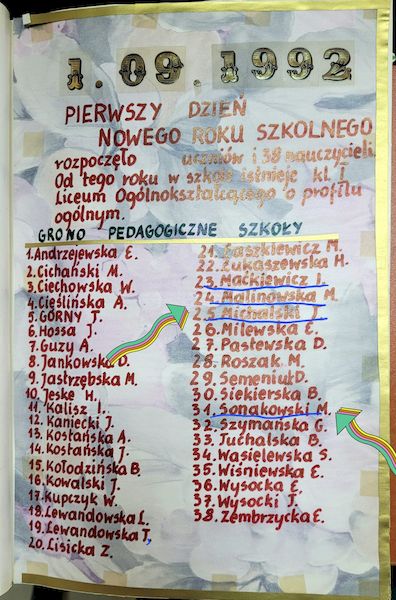 1.09.1992
PIERWSZY DZIEŃ
NOWEGO ROKU SZKOLNEGO
rozpoczęło uczniów i 38 nauczycieli.
Od tego roku w szkole istnieje kl. I
Liceum Ogólnokształcącego o profilu
ogólnym.
GRONO PEDAGOGICZNE SZKOŁY
1. Andrzejewska E.
2. Cichański M.
3. Ciechowska W.
4. Cieślińska A.
5. GÓRNY J.
6. Hossa J.
7. Guzy A.
8. Jankowska D.
9. Jastrzębska M.
10. Jeske H.
11. Kalisz I.
12. Kaniecki J.
13. Kostańska A.
14. Kostańska J.
15. Kołodzińska B.
16. Kowalski J.
17. Kupczyk W.
18. Lewandowska L.
19. Lewandowska T,
20. Lisicka Z.
21. Łaszkiewicz M.
22. Łukaszewska H.
23. Maćkiewicz I.
24. Malinowska M.
25. Michalski J.
26. Milewska E.
27. Pastewska D.
28. Roszak M.
29. Semeniuk D.
30. Siekierska B.
31. Sonakowski M.
32. Szymańska G.
33. Tuchalska B.
34. Wasielewska S.
35. Wiśniewska E.
36. Wysocka E.
37. Wysocki J.
38. Zembrzycka E.